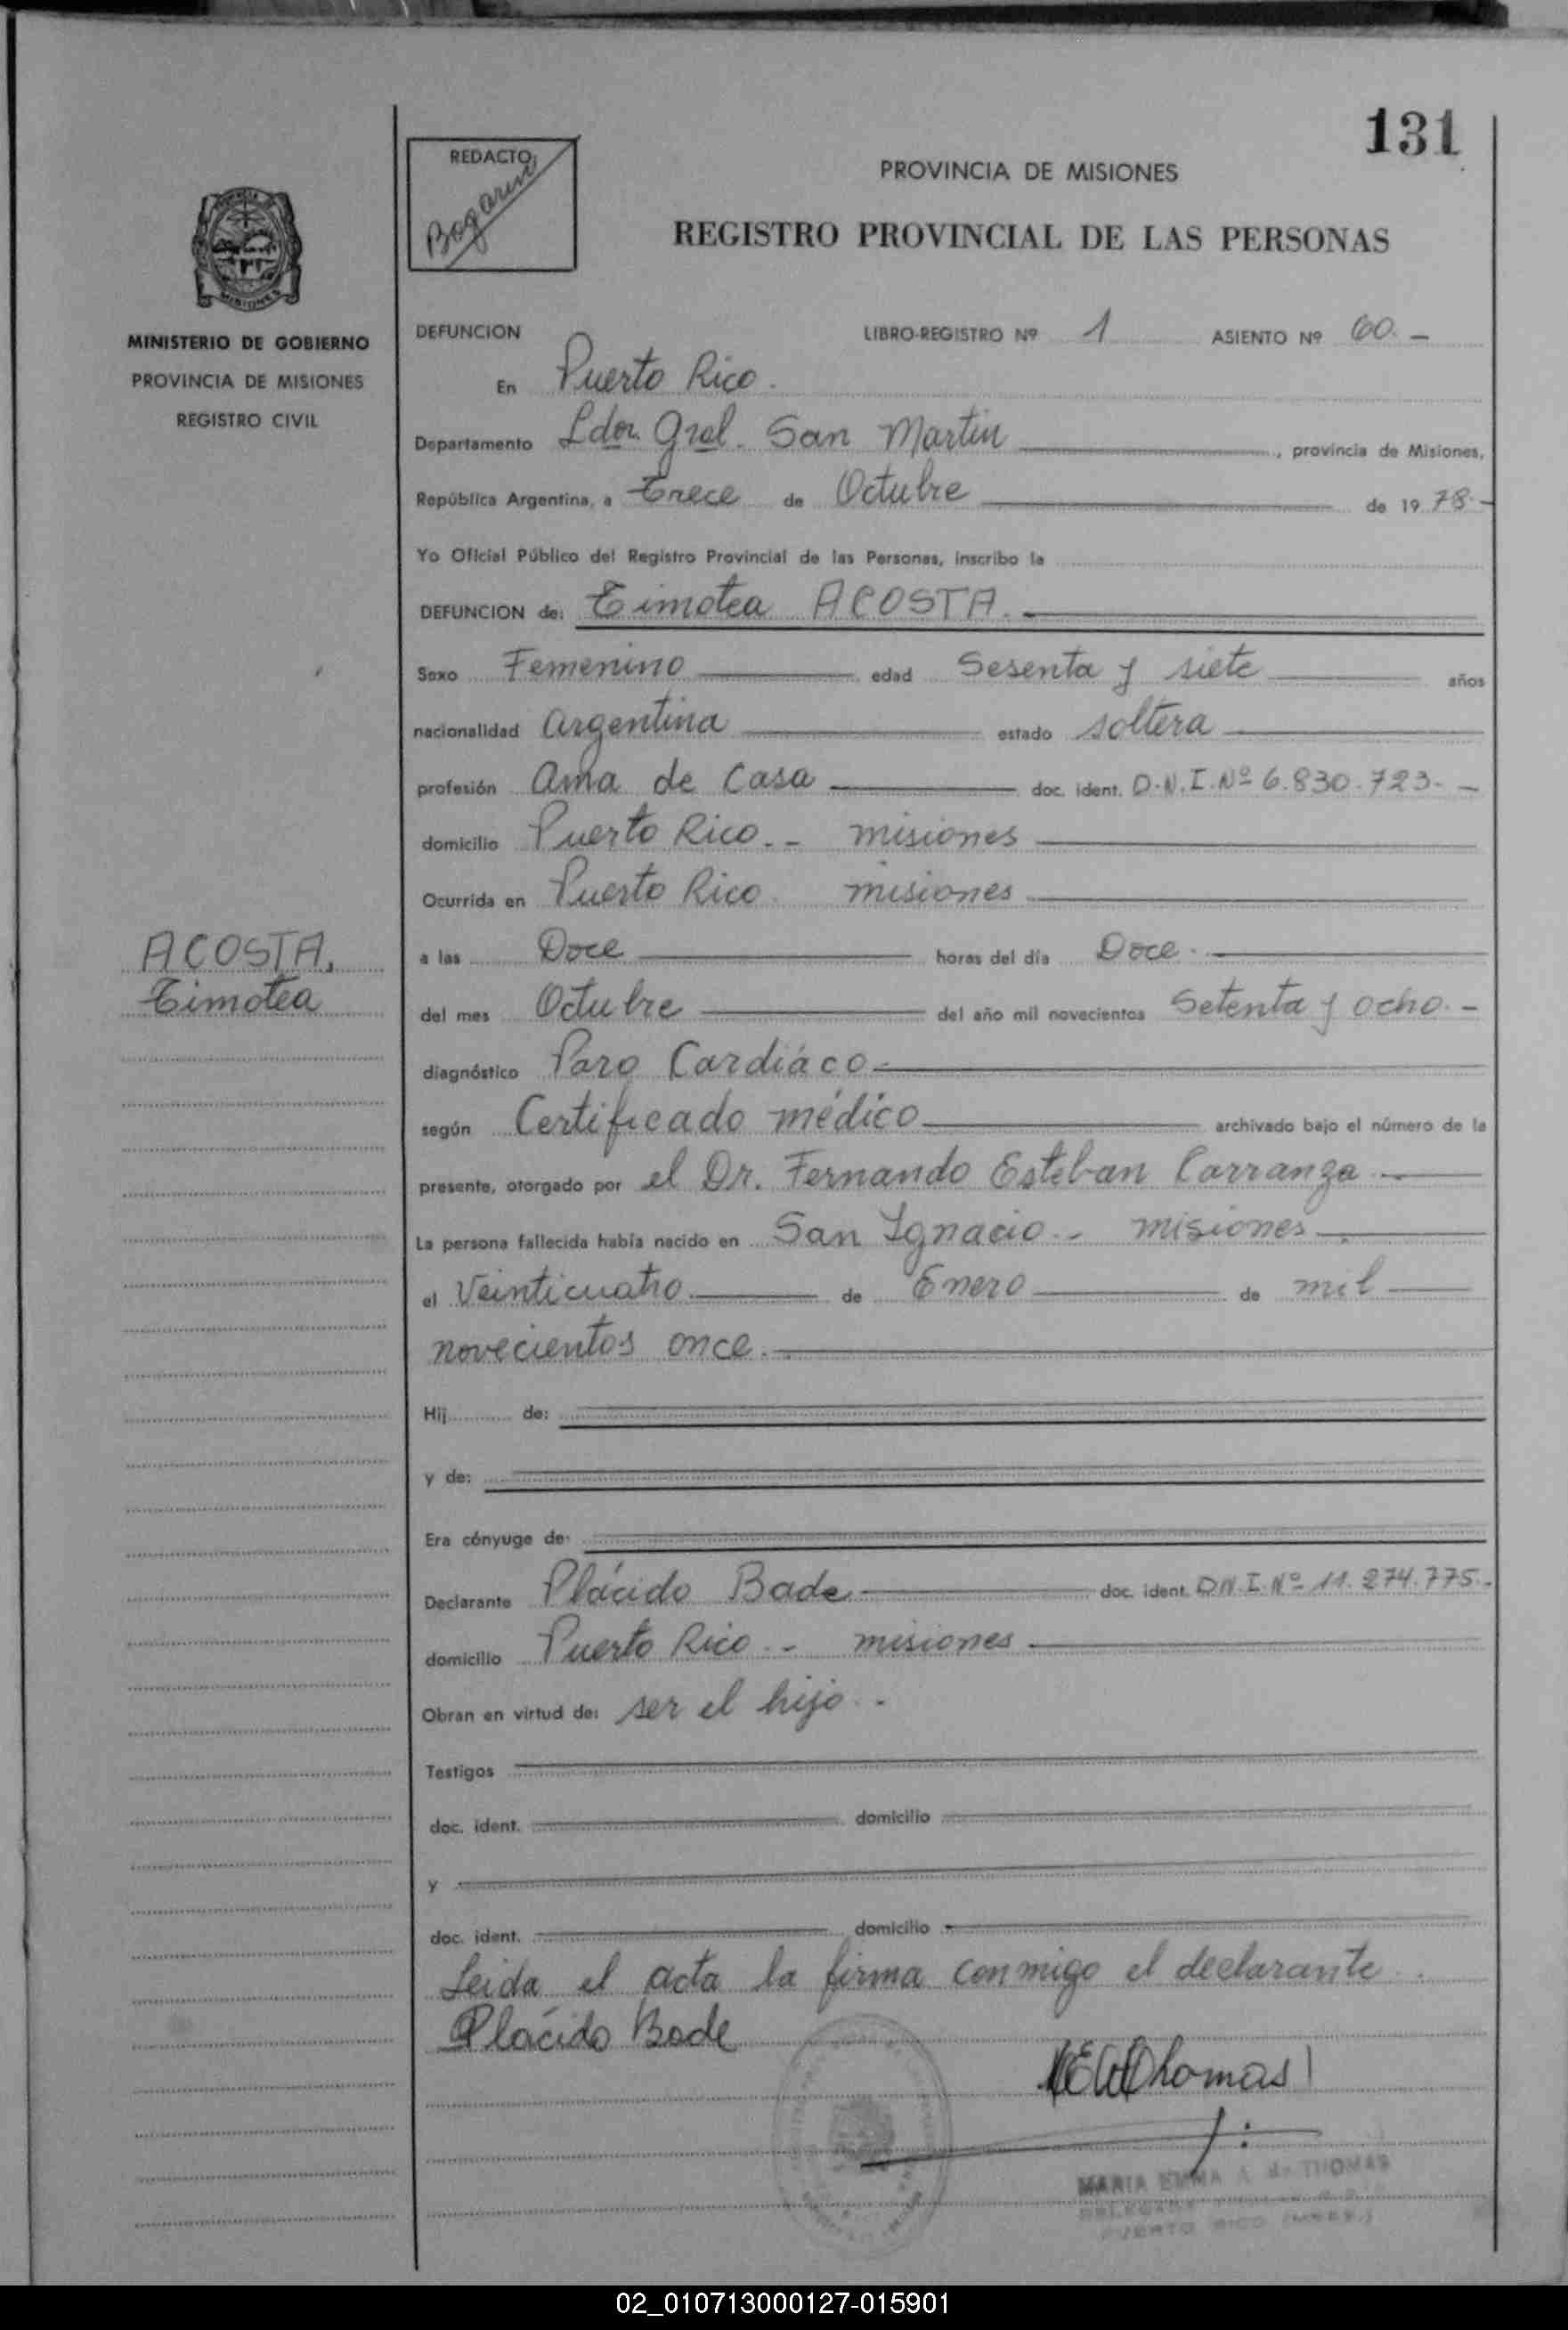 131
REDACTO
Bogarin
PROVINCIA DE MISIONES
REGISTRO PROVINCIAL DE LAS PERSONAS
MISIONES
MINISTERIO DE GOBIERNO
PROVINCIA DE MISIONES
REGISTRO CIVIL
DEFUNCION LIBRO-REGISTRO Nº 1 ASIENTO Nº 60.-
En Puerto Rico.
Departamento Ldor. Gral. San Martin, provincia de Misiones,
República Argentina, a Trece de Octubre de 1978.-
Yo Oficial Público del Registro Provincial de las Personas, inscribo la
DEFUNCION de: Timotea ACOSTA.
Sexo Femenino edad Sesenta y siete años
nacionalidad Argentina estado soltera
profesión Ama de Casa doc. ident. D.N.I.Nº 6.830.723.-
domicilio Puerto Rico.- misiones
Ocurrida en Puerto Rico. misiones
ACOSTA,
Timotea
a las Doce horas del día Doce.
del mes Octubre del año mil novecientos Setenta y ocho.-
diagnóstico Paro Cardiáco.
según Certificado médico archivado bajo el número de la
presente, otorgado por el Dr. Fernando Esteban Carranza
La persona fallecida había nacido en San Ignacio.- misiones
el Veinticuatro de Enero de mil
novecientos once.
Hij de:
y de:
Era cónyuge de:
Declarante Plácido Bade doc. ident. D.N.I.Nº 11.274.775.-
domicilio Puerto Rico.- misiones
Obran en virtud de: ser el hijo.-
Testigos
doc. ident. domicilio
y
doc. ident. domicilio
Leida el acta la firma conmigo el declarante.
Plácido Bade
Thomas
MARIA EMMA A. de THOMAS
PUERTO RICO (MNES.)
02_010713000127-015901